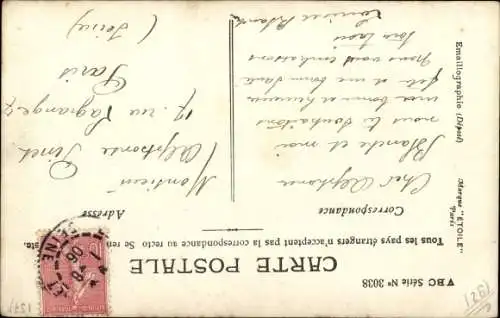 CARTE POSTALE
Tous les pays étrangers n'acceptent pas la correspondance au recto Se ren
ste.
Correspondance
Adresse
Cher Alphonse
Blanche et moi
nous te souhaitons
une bonne et heureuse
fête et une bonne santé
nous vous embrassons
tous trois
Monsieur
Alphonse
17. rue Lagrange
Paris
VBC Série Nº 3038
Marque "ETOILE"
Paris
Emaillographie (Déposé)
SEINE
(1921)